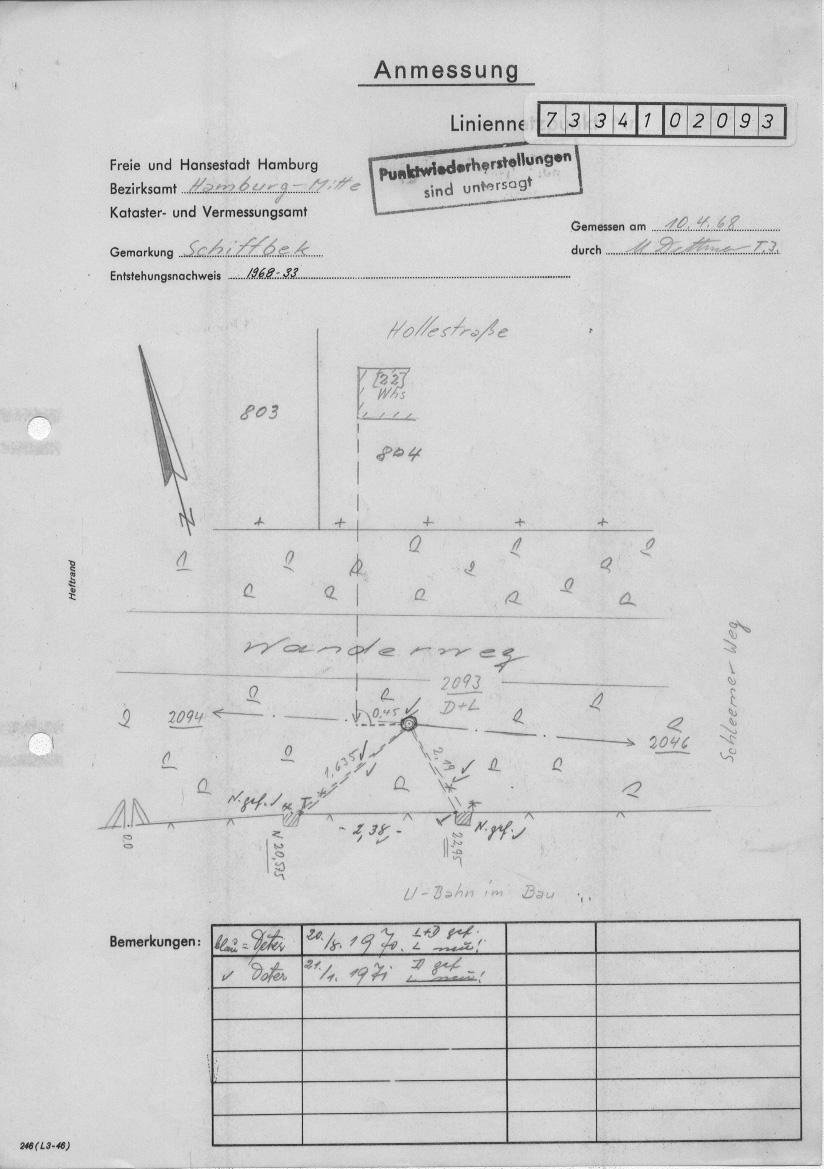 Anmessung
Linienne
7 3 3 4 1 0 2 0 9 3
Punktwiederherstellungen
sind untersagt
Freie und Hansestadt Hamburg
Bezirksamt Hamburg-Mitte
Kataster- und Vermessungsamt
Gemessen am 10.4.68
Gemarkung Schiffbek
durch
Entstehungsnachweis 1968-33
Hollestraße
[22]
Whs
803
804
N
Heftrand
Wanderweg
Schleemer Weg
2093
D+L
2094
0,45
2046
1,635
2,19
N. gef.
2,38
N. gef.
0,0
N 20,575
22,95
U-Bahn im Bau
Bemerkungen:
blau = Deter 20./8. 1970. L+D gef. L neu!
✓ Deter 21./1. 1971 D gef L neu!
246 (L3-46)